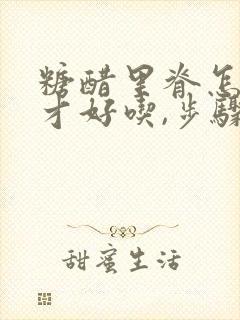 糖醋里脊怎
才好喫,步驟
甜蜜生活